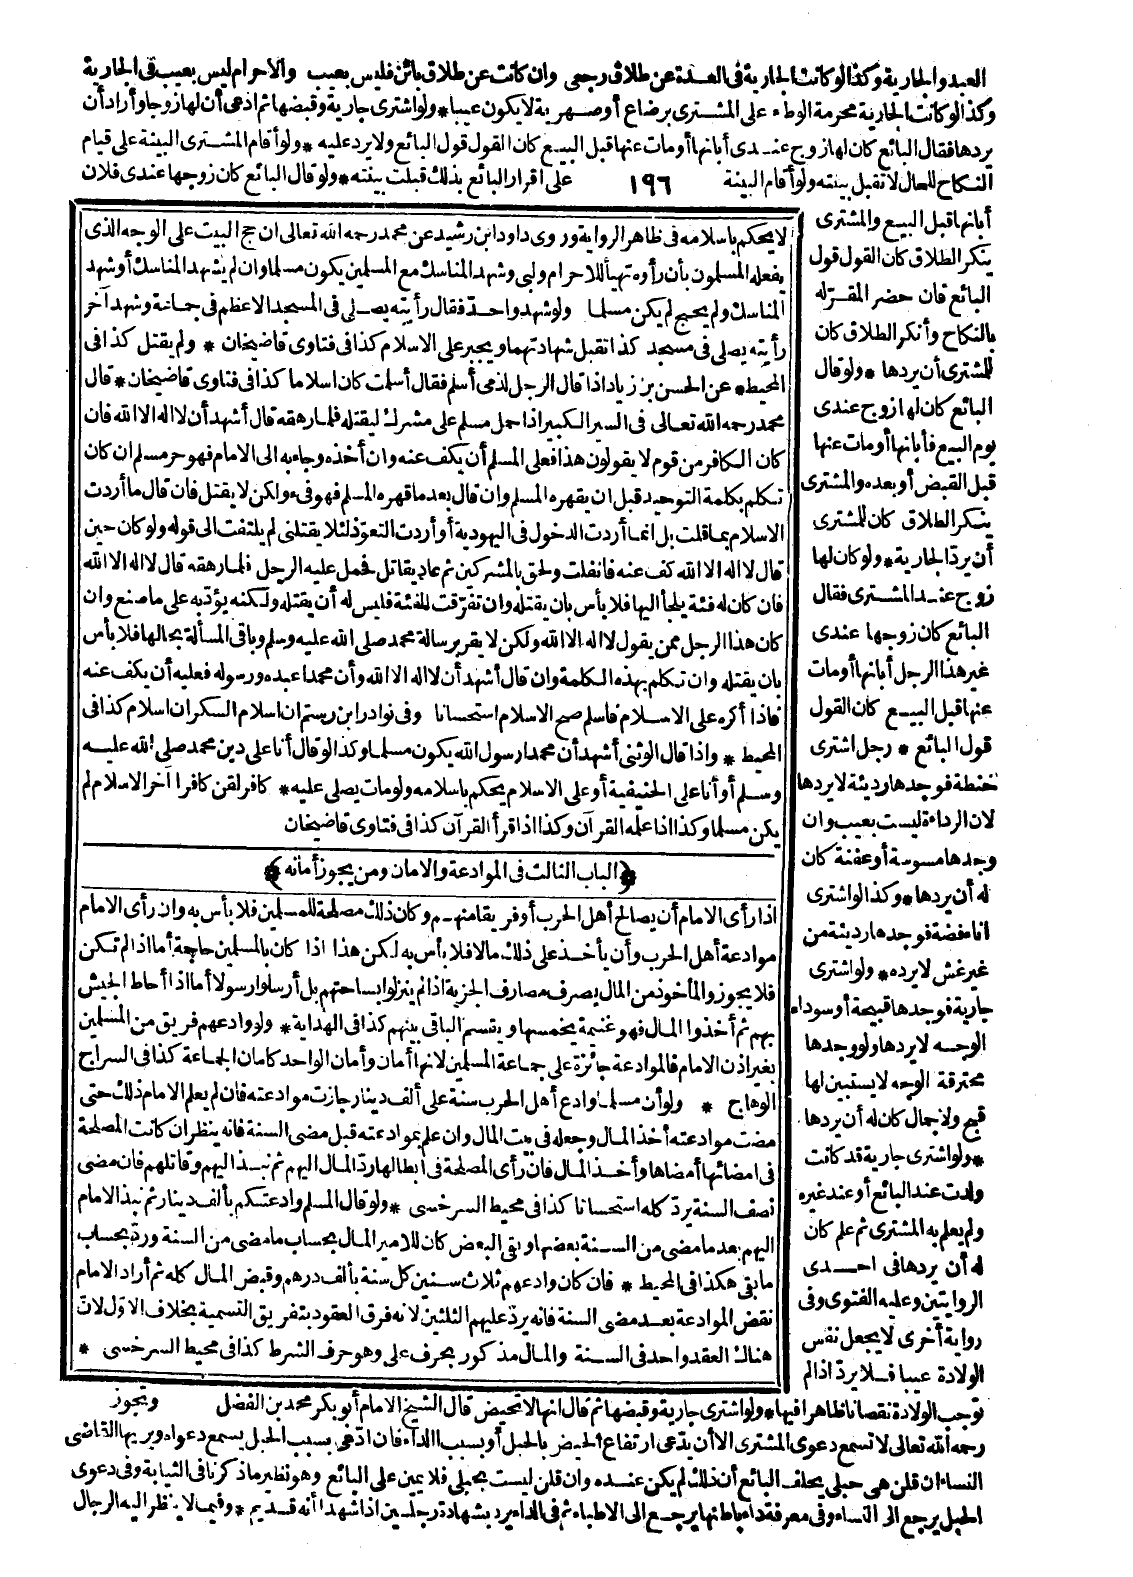 العبد والجارية وكذا لو كانت الجارية فى العدة عن طلاق رجعى وان كانت عن طلاق بائن فليس بعيب والاحرام ليس بعيب فى الجارية
وكذا لو كانت الجارية محرمة الوطء على المشترى برضاع أو صهرية لا يكون عيبا * ولو اشترى جارية وقبضها ثم ادعى أن لها زوجا وأراد أن
يردها فقال البائع كان لها زوج عندى أبانها أو مات عنها قبل البيع كان القول قول البائع ولا يرد عليه * ولو أقام المشترى البينة على قيام
النكاح للحال لا تقبل بينته ولو أقام البينة ١٩٦ على اقرار البائع بذلك قبلت بينته * ولو قال البائع كان زوجها عندى فلان
أبانها قبل البيع والمشترى
ينكر الطلاق كان القول قول
البائع فان حضر المقر له
بالنكاح وأنكر الطلاق كان
للمشترى أن يردها * ولو قال
البائع كان لها زوج عندى
يوم البيع فأبانها أو مات عنها
قبل القبض أو بعده والمشترى
ينكر الطلاق كان للمشترى
أن يرد الجارية * ولو كان لها
زوج عند المشترى فقال
البائع كان زوجها عندى
غير هذا الرجل أبانها أو مات
عنها قبل البيع كان القول
قول البائع * رجل اشترى
حنطة فوجدها رديئة لا يردها
لان الرداءة ليست بعيب وان
وجدها مسوسة أو عفنة كان
له أن يردها * وكذا لو اشترى
اناء فضة فوجدها رديئة من
غير غش لا يرده * ولو اشترى
جارية فوجدها قبيحة أو سوداء
الوجه لا يردها ولو وجدها
محترقة الوجه لا يستبين لها
قبح ولا جمال كان له أن يردها
* ولو اشترى جارية قد كانت
ولدت عند البائع أو عند غيره
ولم يعلم به المشترى ثم علم كان
له أن يردها فى احدى
الروايتين وعليه الفتوى وفى
رواية أخرى لا يجعل نفس
الولادة عيبا فلا يرد اذا لم
لا يحكم باسلامه فى ظاهر الرواية وروى داود ابن رشيد عن محمد رحمه الله تعالى ان حج البيت على الوجه الذى
يفعله المسلمون بأن رأوه تهيأ للاحرام ولبى وشهد المناسك مع المسلمين يكون مسلما وان لم يشهد المناسك أو شهد
المناسك ولم يحج لم يكن مسلما ولو شهد واحد فقال رأيته يصلى فى المسجد الاعظم فى جماعة وشهد آخر
رأيته يصلى فى مسجد كذا تقبل شهادتهما ويجبر على الاسلام كذا فى فتاوى قاضيخان * ولم يقتل كذا فى
المحيط * عن الحسن بن زياد اذا قال الرجل لذمى أسلم فقال أسلمت كان اسلاما كذا فى فتاوى قاضيخان * قال
محمد رحمه الله تعالى فى السير الكبير اذا حمل مسلم على مشرك ليقتله فلما رهقه قال أشهد أن لا اله الا الله فان
كان الكافر من قوم لا يقولون هذا فعلى المسلم أن يكف عنه وان أخذه وجاء به الى الامام فهو حر مسلم ان كان
تكلم بكلمة التوحيد قبل ان يقهره المسلم وان قال بعد ما قهره المسلم فهو فىء ولكن لا يقتل فان قال ما أردت
الاسلام بما قلت بل انما أردت الدخول فى اليهودية أو أردت التعوذ لئلا يقتلنى لم يلتفت الى قوله ولو كان حين
قال لا اله الا الله كف عنه فانفلت ولحق بالمشركين ثم عاد يقاتل فحمل عليه الرجل فلما رهقه قال لا اله الا الله
فان كان له فئة يلجأ اليها فلا بأس بان يقتله وان تفرقت الفئة فليس له أن يقتله ولكنه يؤدبه على ما صنع وان
كان هذا الرجل ممن يقول لا اله الا الله ولكن لا يقر برسالة محمد صلى الله عليه وسلم وباقى المسألة بحالها فلا بأس
بان يقتله وان تكلم بهذه الكلمة وان قال أشهد أن لا اله الا الله وأن محمدا عبده ورسوله فعليه أن يكف عنه
فاذا أكره على الاسلام فاسلم صح الاسلام استحسانا وفى نوادر ابن رستم ان اسلام السكران اسلام كذا فى
المحيط * واذا قال الوثنى أشهد أن محمدا رسول الله يكون مسلما وكذا لو قال أنا على دين محمد صلى الله عليه
وسلم أو أنا على الحنيفية أو على الاسلام يحكم باسلامه ولو مات يصلى عليه * كافر لقن كافرا آخر الاسلام لم
يكن مسلما وكذا اذا علمه القرآن وكذا اذا قرأ القرآن كذا فى فتاوى قاضيخان
﴿الباب الثالث فى الموادعة والامان ومن يجوز أمانه﴾
اذا رأى الامام أن يصالح أهل الحرب أو فريقا منهم وكان ذلك مصلحة للمسلمين فلا بأس به وان رأى الامام
موادعة أهل الحرب وأن يأخذ على ذلك مالا فلا بأس به لكن هذا اذا كان بالمسلمين حاجة أما اذا لم تكن
فلا يجوز والمأخوذ من المال يصرف مصارف الجزية اذا لم ينزلوا بساحتهم بل أرسلوا رسولا أما اذا أحاط الجيش
بهم ثم أخذوا المال فهو غنيمة يخمسها ويقسم الباقى بينهم كذا فى الهداية * ولو وادعهم فريق من المسلمين
بغير اذن الامام فالموادعة جائزة على جماعة المسلمين لانها أمان وأمان الواحد كامان الجماعة كذا فى السراج
الوهاج * ولو أن مسلما وادع أهل الحرب سنة على ألف دينار جازت موادعته فان لم يعلم الامام ذلك حتى
مضت موادعته أخذ المال وجعله فى بيت المال وان علم بموادعته قبل مضى السنة فانه ينظر ان كانت المصلحة
فى امضائها أمضاها وأخذ المال فان رأى المصلحة فى ابطالها رد المال اليهم ثم نبذ اليهم وقاتلهم فان مضى
نصف السنة يرد كله استحسانا كذا فى محيط السرخسى * ولو قال المسلم وادعتكم بألف دينار ثم نبذ الامام
اليهم بعد ما مضى من السنة بعضها وبقى البعض كان للامير المال بحساب ما مضى من السنة ورد بحساب
ما بقى هكذا فى المحيط * فان كان وادعهم ثلاث سنين كل سنة بألف درهم وقبض المال كله ثم أراد الامام
نقض الموادعة بعد مضى السنة فانه يرد عليهم الثلثين لانه فرق العقود بتفريق التسمية بخلاف الاول لان
هناك العقد واحد فى السنة والمال مذكور بحرف على وهو حرف الشرط كذا فى محيط السرخسى *
توجب الولادة نقصانا ظاهرا فيها * ولو اشترى جارية وقبضها ثم قال انها لا تحيض قال الشيخ الامام أبو بكر محمد بن الفضل ويجوز
رحمه الله تعالى لا تسمع دعوى المشترى الا أن يدعى ارتفاع الحيض بالحبل أو بسبب الداء فان ادعى بسبب الحبل يسمع دعواه ويريها القاضى
النساء ان قلن هى حبلى يحلف البائع أن ذلك لم يكن عنده وان قلن ليست بحبلى فلا يمين على البائع وهو نظير ما ذكرنا فى الثيابة وفى دعوى
الحبل يرجع الى النساء وفى معرفة داء باطنها يرجع الى الاطباء ثم فى الداء يرد بشهادة رجلين اذا شهدا أنه قديم * وفيما لا ينظر اليه الرجال